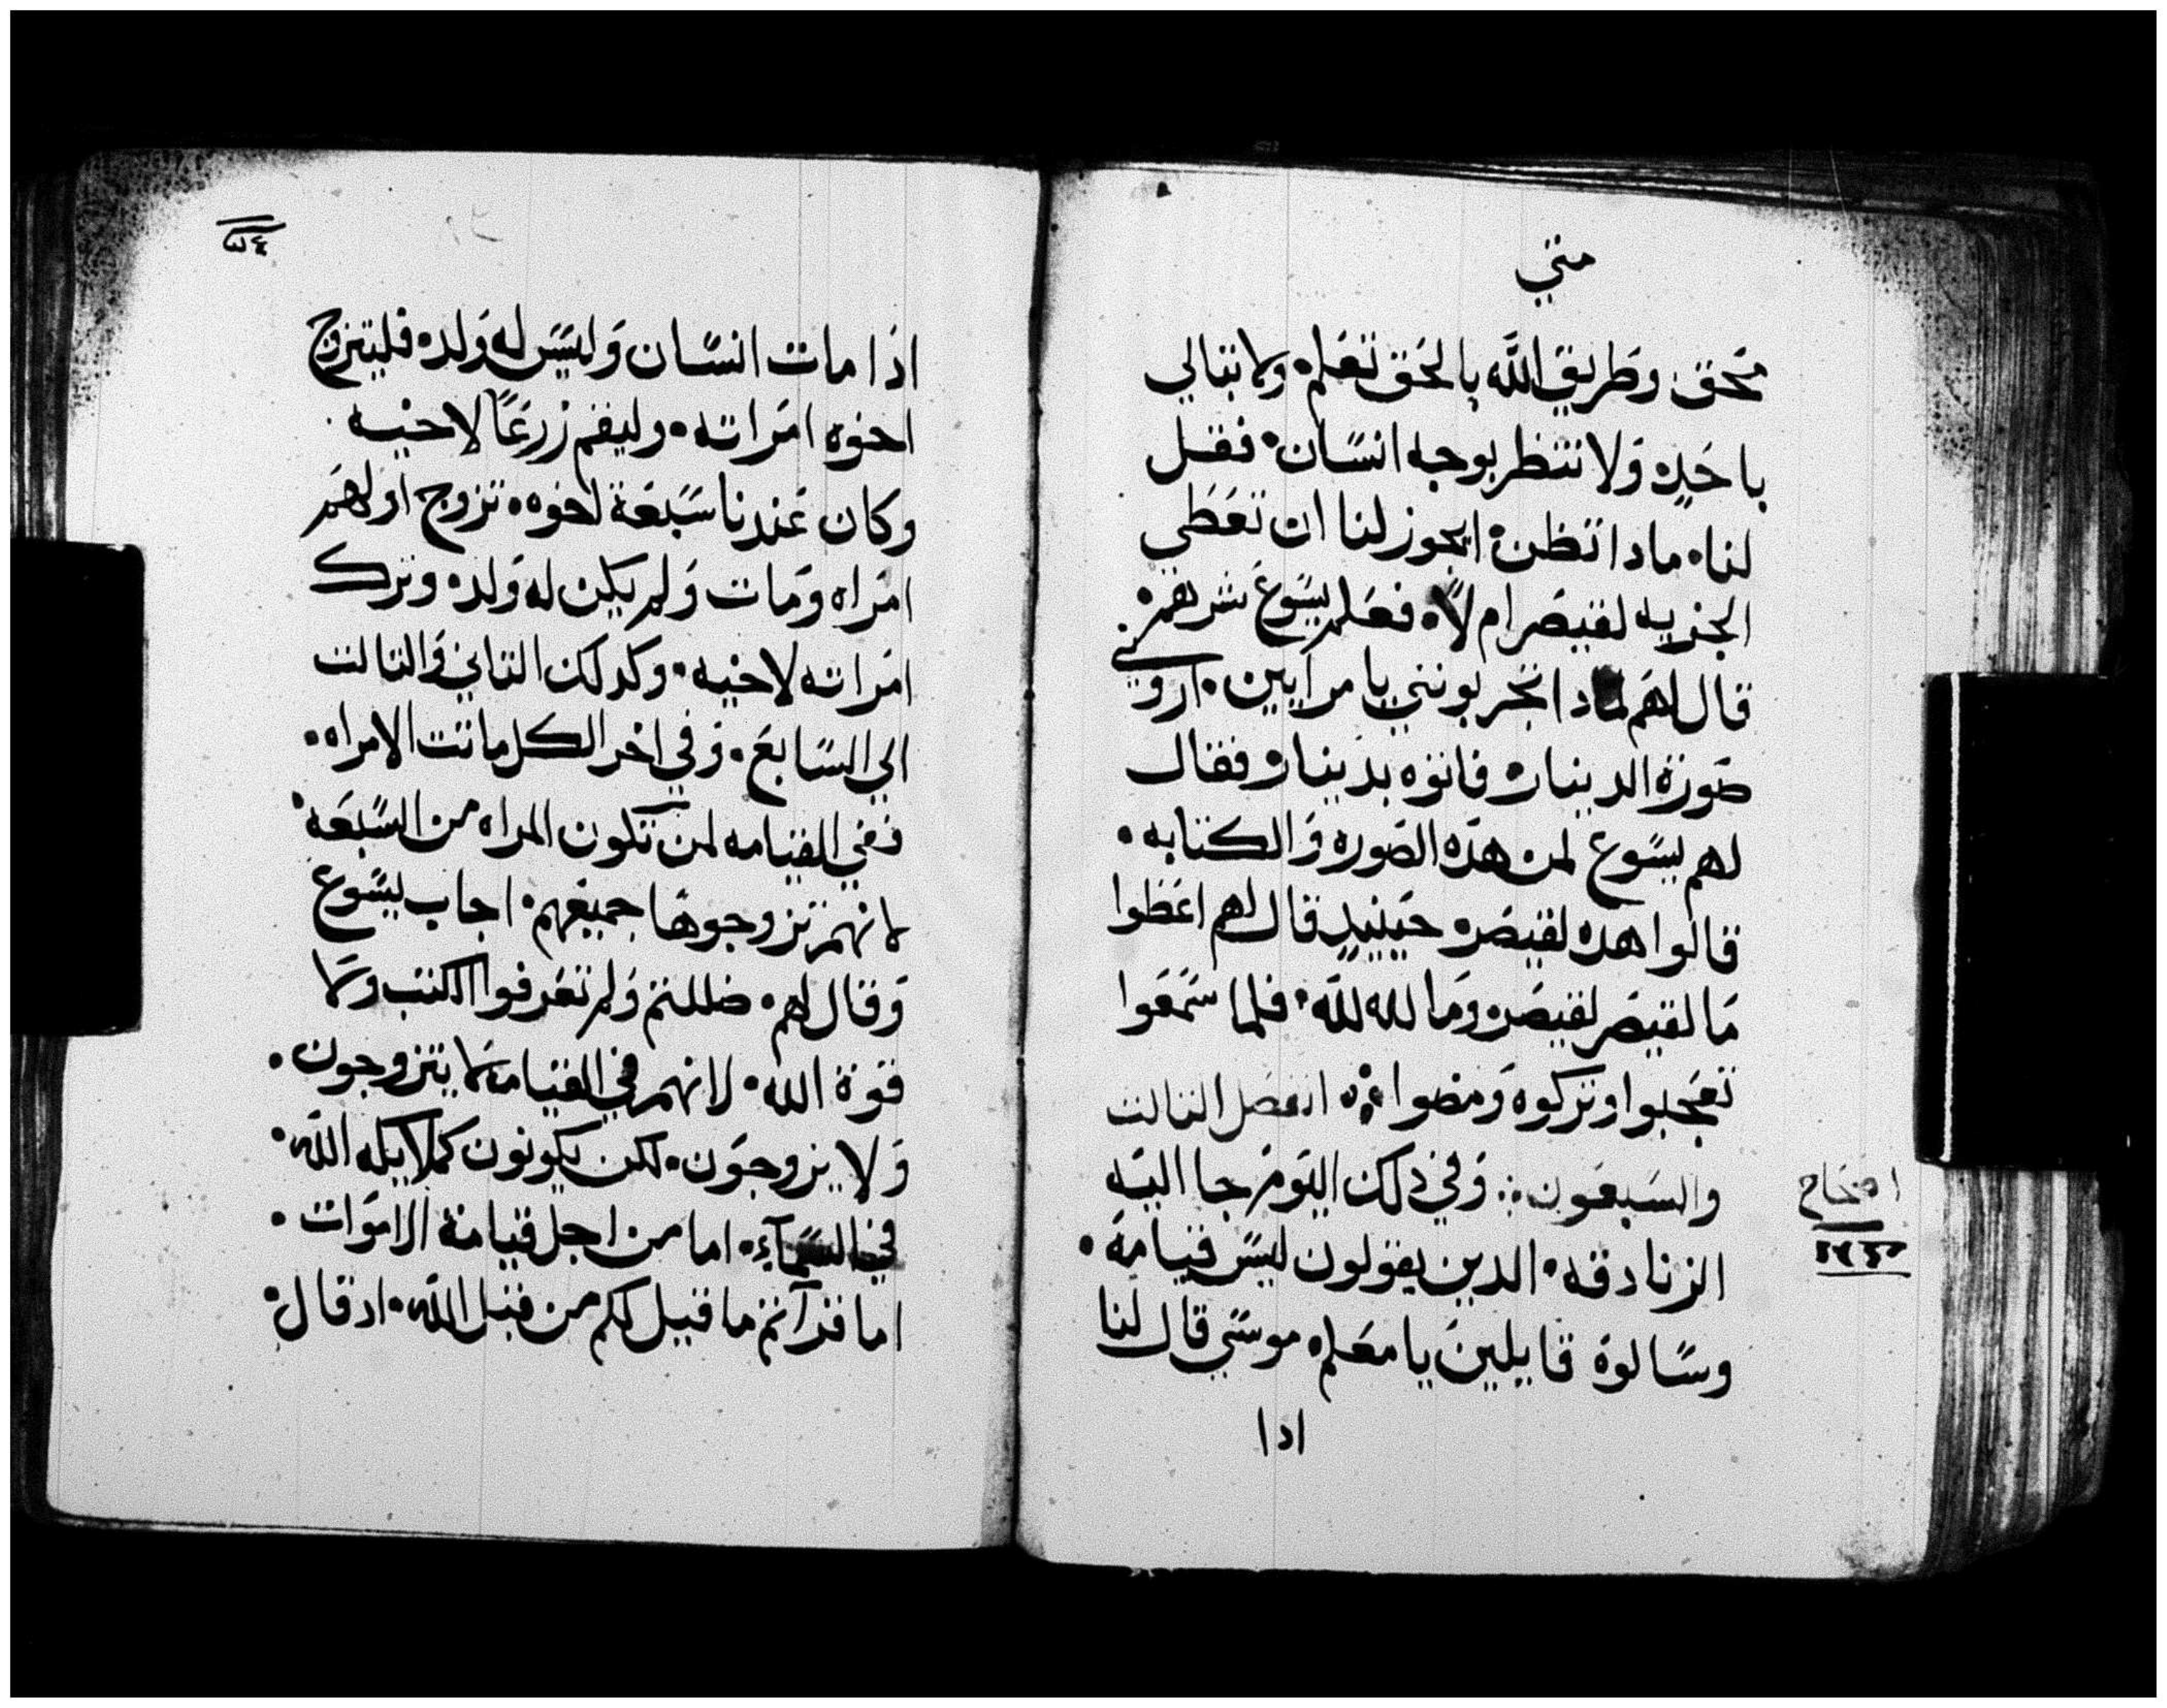 متي
محق وطريق الله بالحق تعلم۰ ولا تبالي
باحد۰ ولا تنظر بوجه انسان۰ فقل
لنا۰ مادا تظن۰ ايجوز لنا ان تعطي
الجزيه لقيصر ام لا۰ فعلم يسوع شرهم۰
قال لهم لمادا تجربونني يا مرايين۰ اروني
صورة الدينار۰ فاتوه بدينار۰ فقال
لهم يسوع لمن هده الصوره والكتابه۰
قالوا هده لقيصر۰ حينيد قال لهم اعطوا
ما لقيصر لقيصر۰ وما لله لله۰ فلما سمعوا
تعجبوا وتركوه ومضوا ۰:۰ الفصل التالت
والسبعون :۰ وفي دلك اليوم جا اليه
الزنادقه۰ الدين يقولون ليس قيامة۰
وسالوه قايلين يا معلم۰ موسي قال لنا
ادا
ادا مات انسان وليس له ولد۰ فليتزوج
اخوه امراته۰ وليقم زرعًا لاخيه
وكان عندنا سبعة اخوه۰ تزوج اولهم
امراه ومات ولم يكن له ولد۰ وترك
امراته لاخيه۰ وكدلك التاني والتالت
الي السابع۰ وفي اخر الكل ماتت الامراه۰
ففي القيامه لمن تكون المراه من السبعه۰
لانهم تزوجوها جميعهم۰ اجاب يسوع
وقال لهم۰ ضللتم ولم تعرفوا الكتب ولا
قوة الله۰ لانهم في القيامه لا يتزوجون۰
ولا يزوجون۰ لكن يكونون كملايكه الله۰
في السمآء۰ اما من اجل قيامة الاموات۰
اما قراتم ما قيل لكم من قبل الله۰ اد قال۰